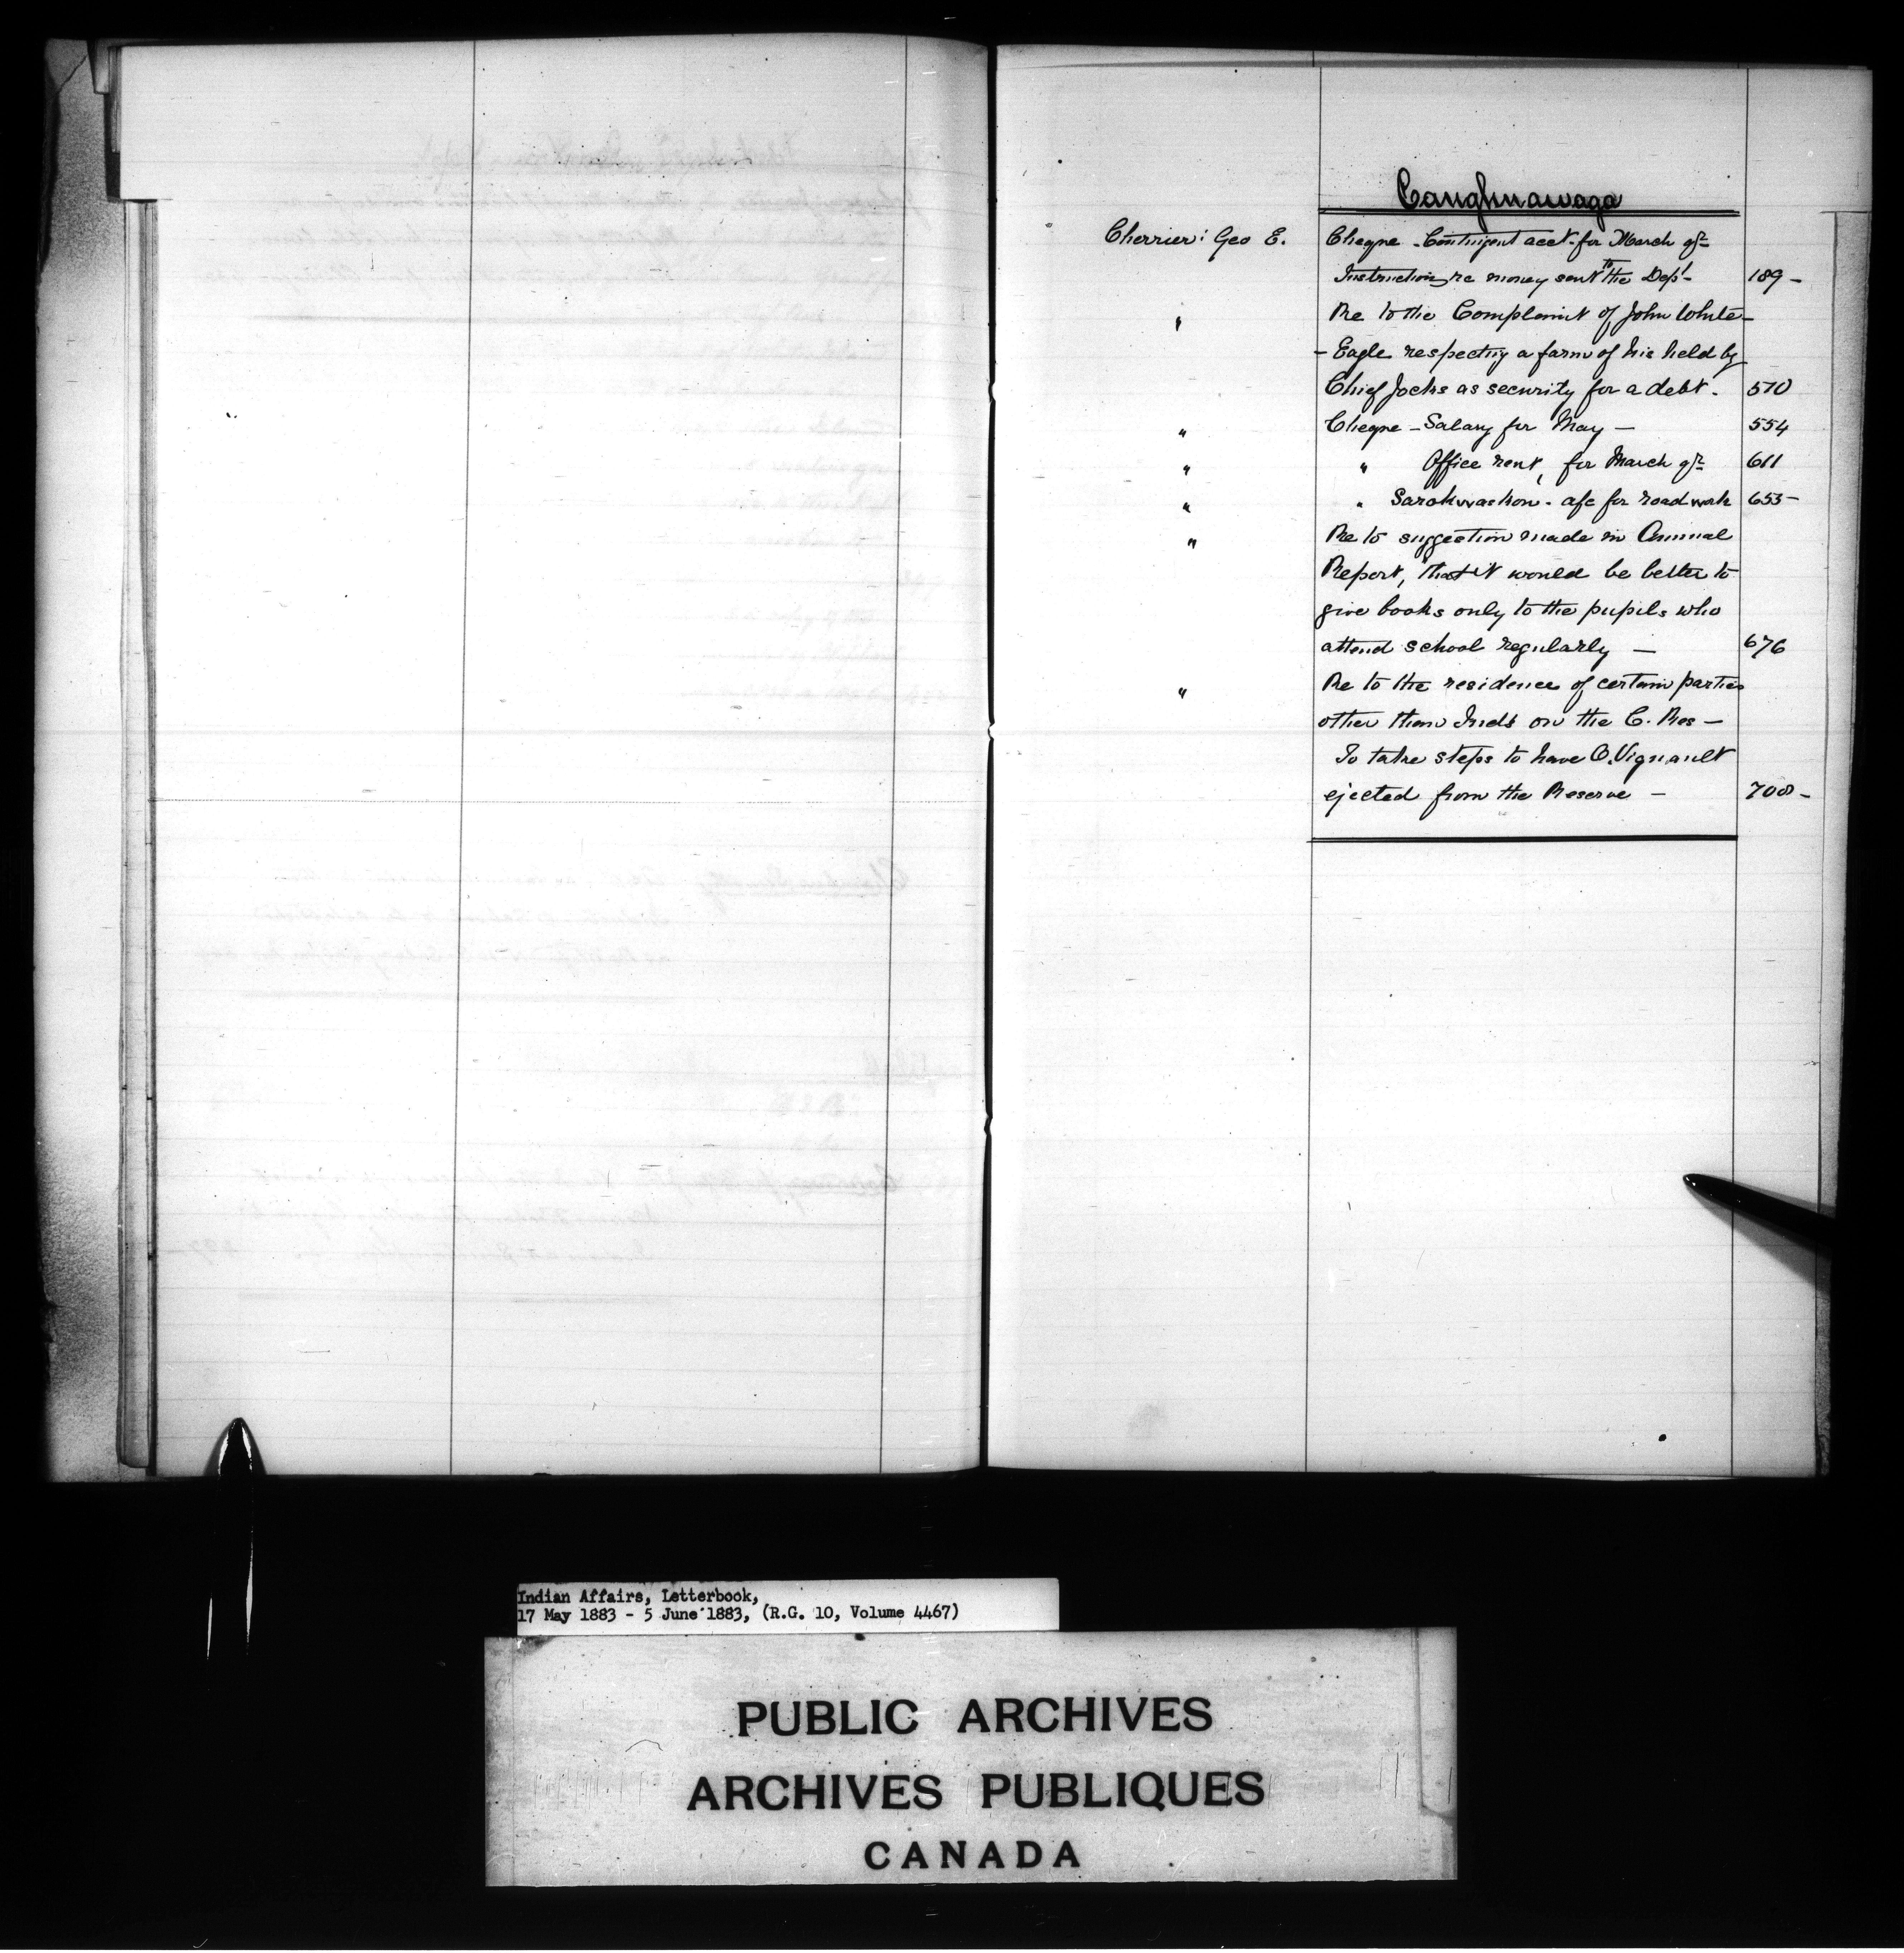 Caughnawaga
Cherrier: Geo E. Cheque - Contingent acct. for March qr
Instructions re money sent to the Dept - 189 -
" Re to the Complaint of John White-
- Eagle respecting a farm of his held by
Chief Jocks as security for a debt. 510
" Cheque - Salary for May - 554
" " Office rent, for March qr 611
" " a/c for road work 653 -
" Re to suggestion made in Annual
Report, that it would be better to
give books only to the pupils who
attend school regularly - 676
" Re to the residence of certain parties
other than Inds on the C. Res -
To take steps to have O. Vignault
ejected from the Reserve - 708 -
Indian Affairs, Letterbook,
17 May 1883 - 5 June 1883, (R.G. 10, Volume 4467)
PUBLIC ARCHIVES
ARCHIVES PUBLIQUES
CANADA